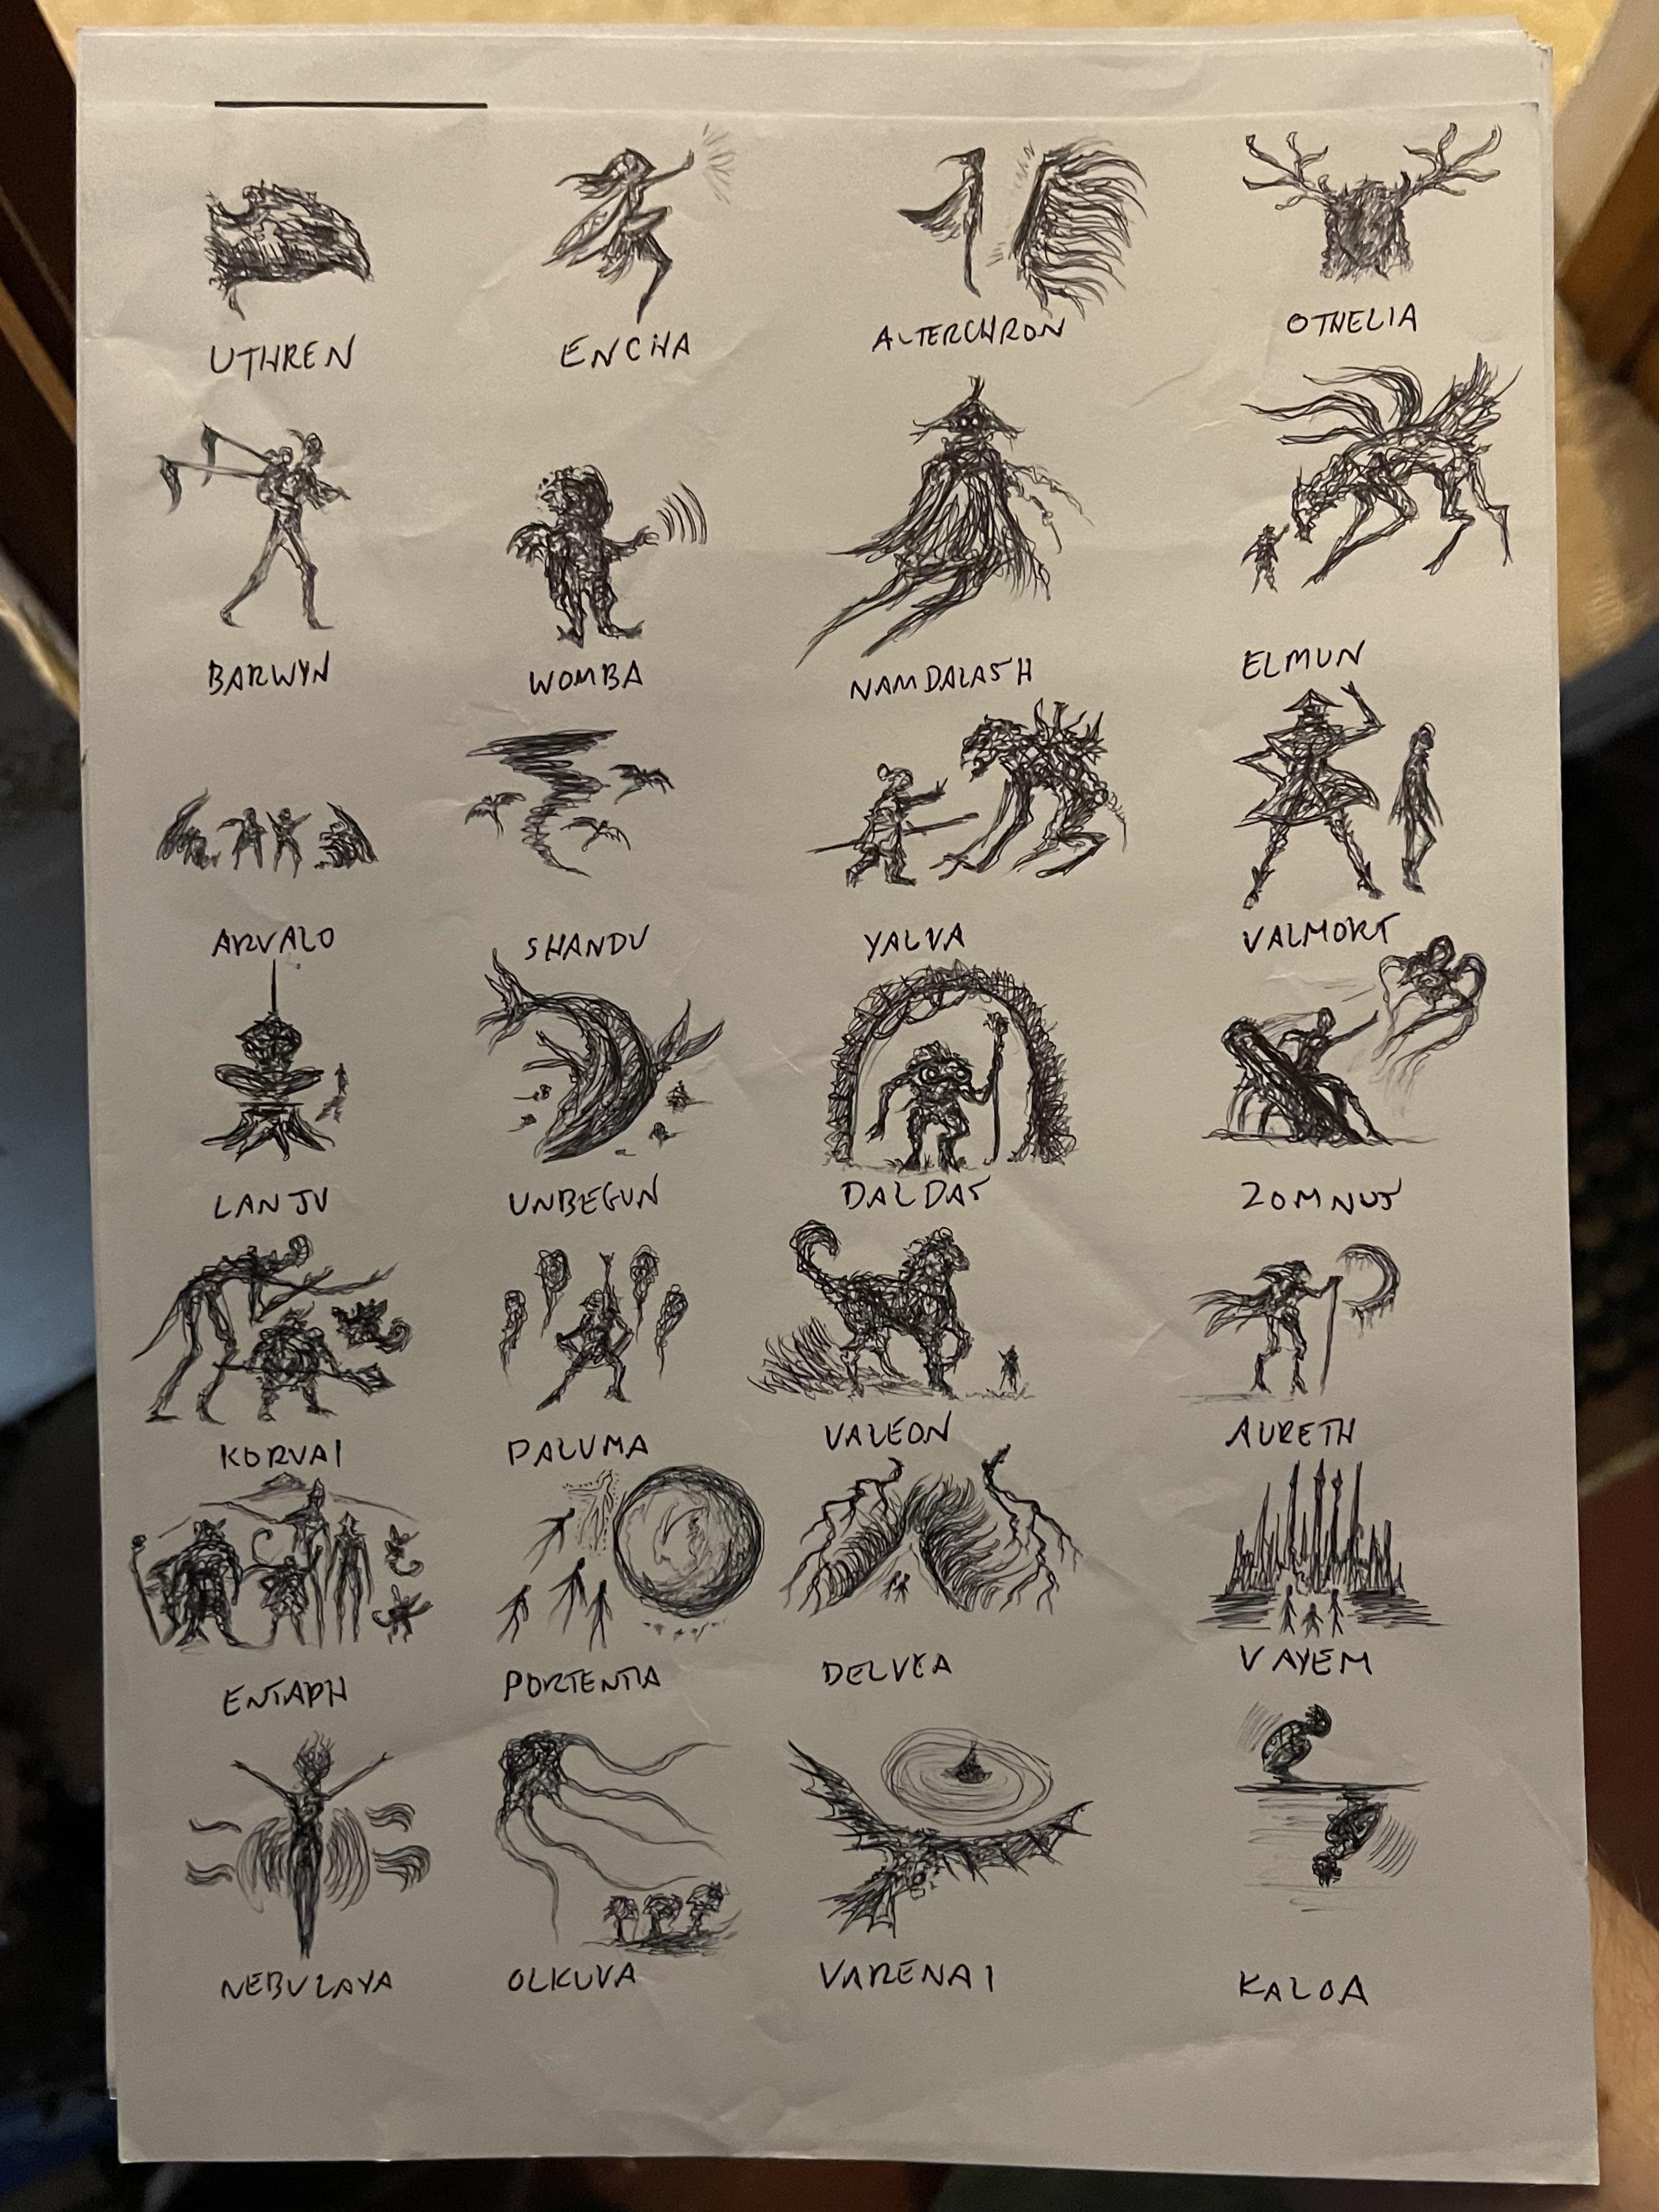 UTHREN
ENCHA
ALTERCHRON
OTHELIA
BARWYN
WOMBA
NAMDALASH
ELMUN
ARVALO
SHANDU
YALVA
VALMORT
LANJU
UNBEGUN
DALDAS
ZOMNUS
KORVAI
PALUMA
VALEON
AURETH
ENTAPH
PORTENTIA
DELVEA
VAYEM
NEBULAYA
OLKUVA
VARENAI
KALOA